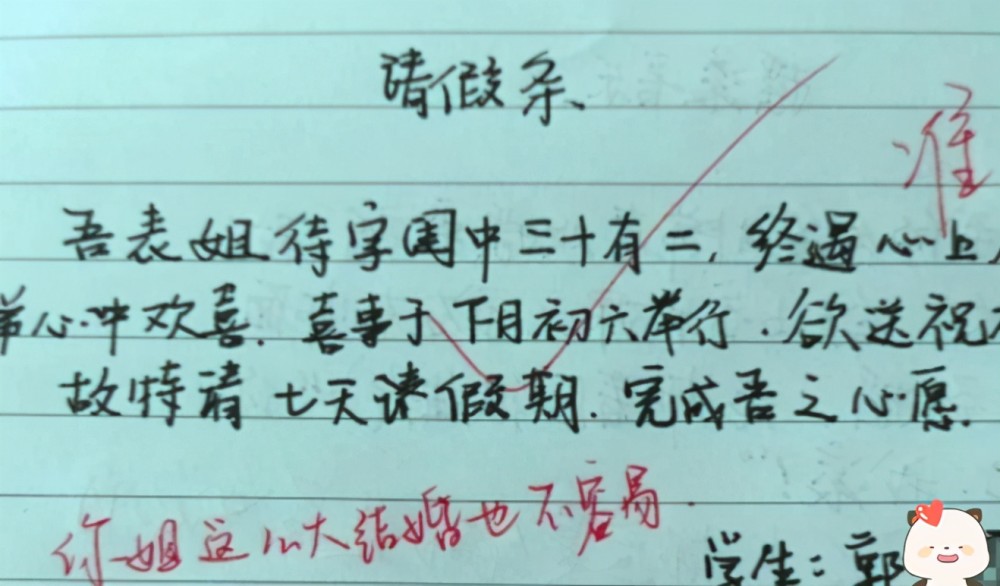 请假条
准
吾表姐待字闺中三十有二,终遇心上
弟心中欢喜.喜事于下月初六举行.欲送祝
故特请七天课假期.完成吾之心愿.
你姐这么大结婚也不容易.
学生:郭